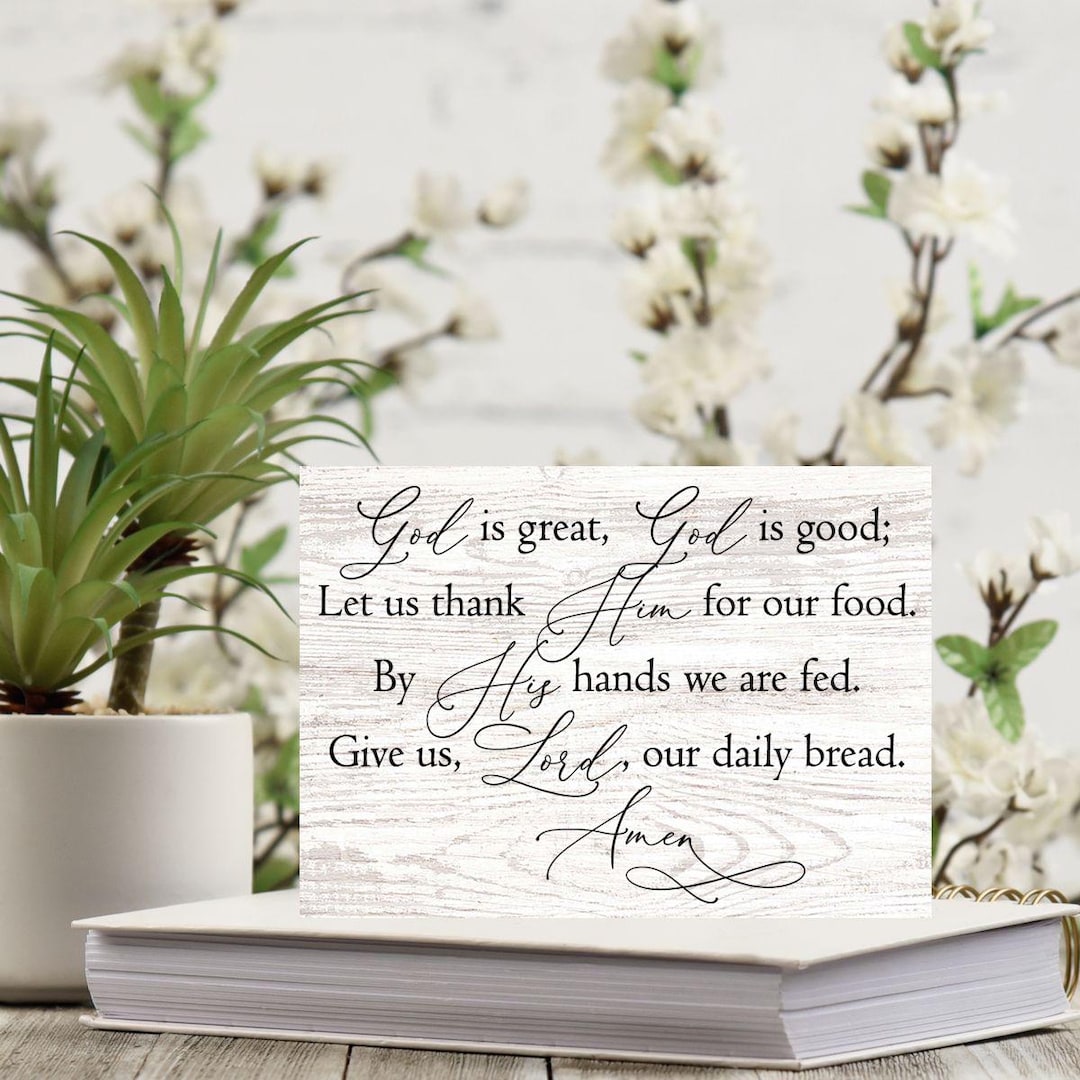 God is great, God is good;
Let us thank Him for our food.
By His hands we are fed.
Give us, Lord, our daily bread.
Amen